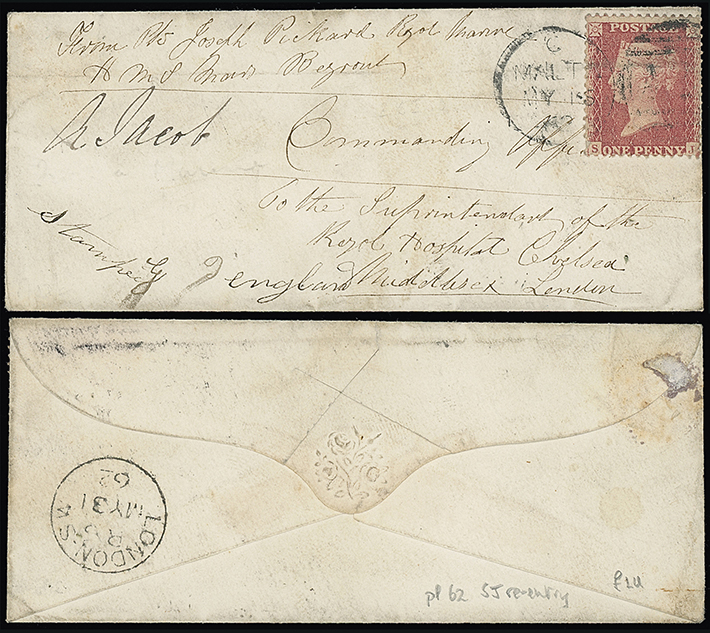 From Pte Joseph Pickard Royl Marine
H M S Mars Beyrout
A Jacob Commanding Offi
To the Suprintendart of the
Royal Hospital Chelsea
Stamped
england Middlesex London
C
MALT
MY 18
62
POSTAGE
S ONE PENNY J
LONDON S W
MY 31
62
pl 62 SJ re-entry